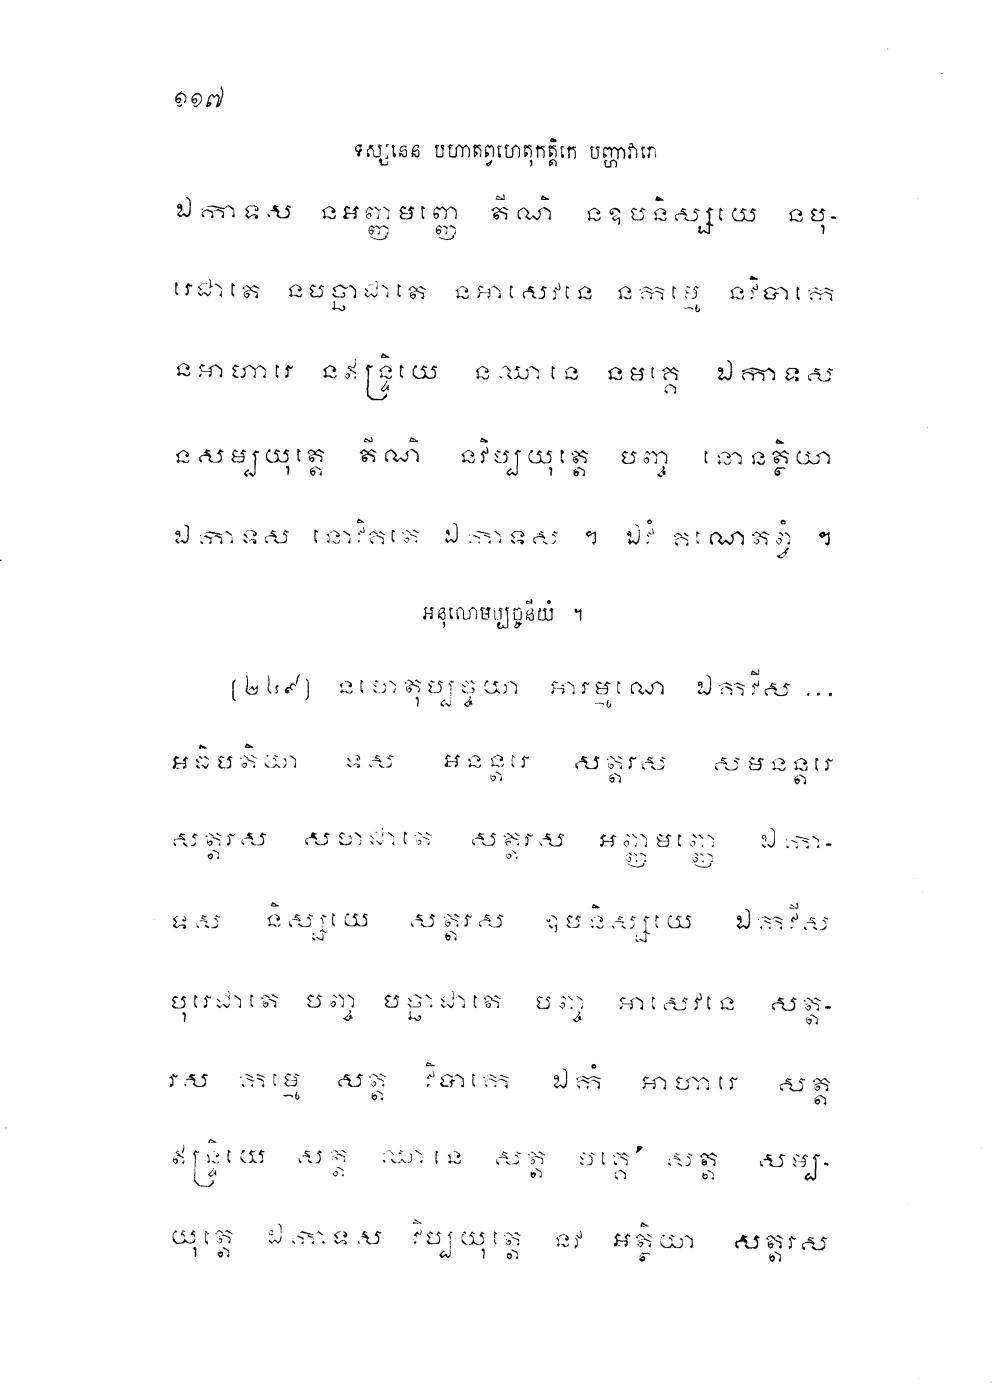 ១១៧
ទស្សនេន បហាតព្វហេតុកត្តិកេ បញ្ហាវារោ
ឯកាទស នអញ្ញមញ្ញេ តីណិ នឧបនិស្សយេ នបុ-
រេជាតេ នបច្ឆាជាតេ នអាសេវនេ នកម្មេ នវិបាកេ
នអាហារេ នឥន្ទ្រិយេ នឈានេ នមគ្គេ ឯកាទស
នសម្បយុត្តេ តីណិ នវិប្បយុត្តេ បញ្ច នោនត្ថិយា
ឯកាទស នោវិគតេ ឯកាទស ។ ឯវំ គណេតព្វំ ។
អនុលោមប្បច្ចនីយំ ។
(២៤៩) នហេតុប្បច្ចយា អារម្មណេ ឯកវីស ...
អធិបតិយា ទស អនន្តរេ សត្តរស សមនន្តរេ
សត្តរស សហជាតេ សត្តរស អញ្ញមញ្ញេ ឯកា-
ទស និស្សយេ សត្តរស ឧបនិស្សយេ ឯកវីស
បុរេជាតេ បញ្ច បច្ឆាជាតេ បញ្ច អាសេវនេ សត្ត-
រស កម្មេ សត្ត វិបាកេ ឯកំ អាហារេ សត្ត
ឥន្ទ្រិយេ សត្ត ឈានេ សត្ត មគ្គេ សត្ត សម្ប-
យុត្តេ ឯកាទស វិប្បយុត្តេ នវ អត្ថិយា សត្តរស